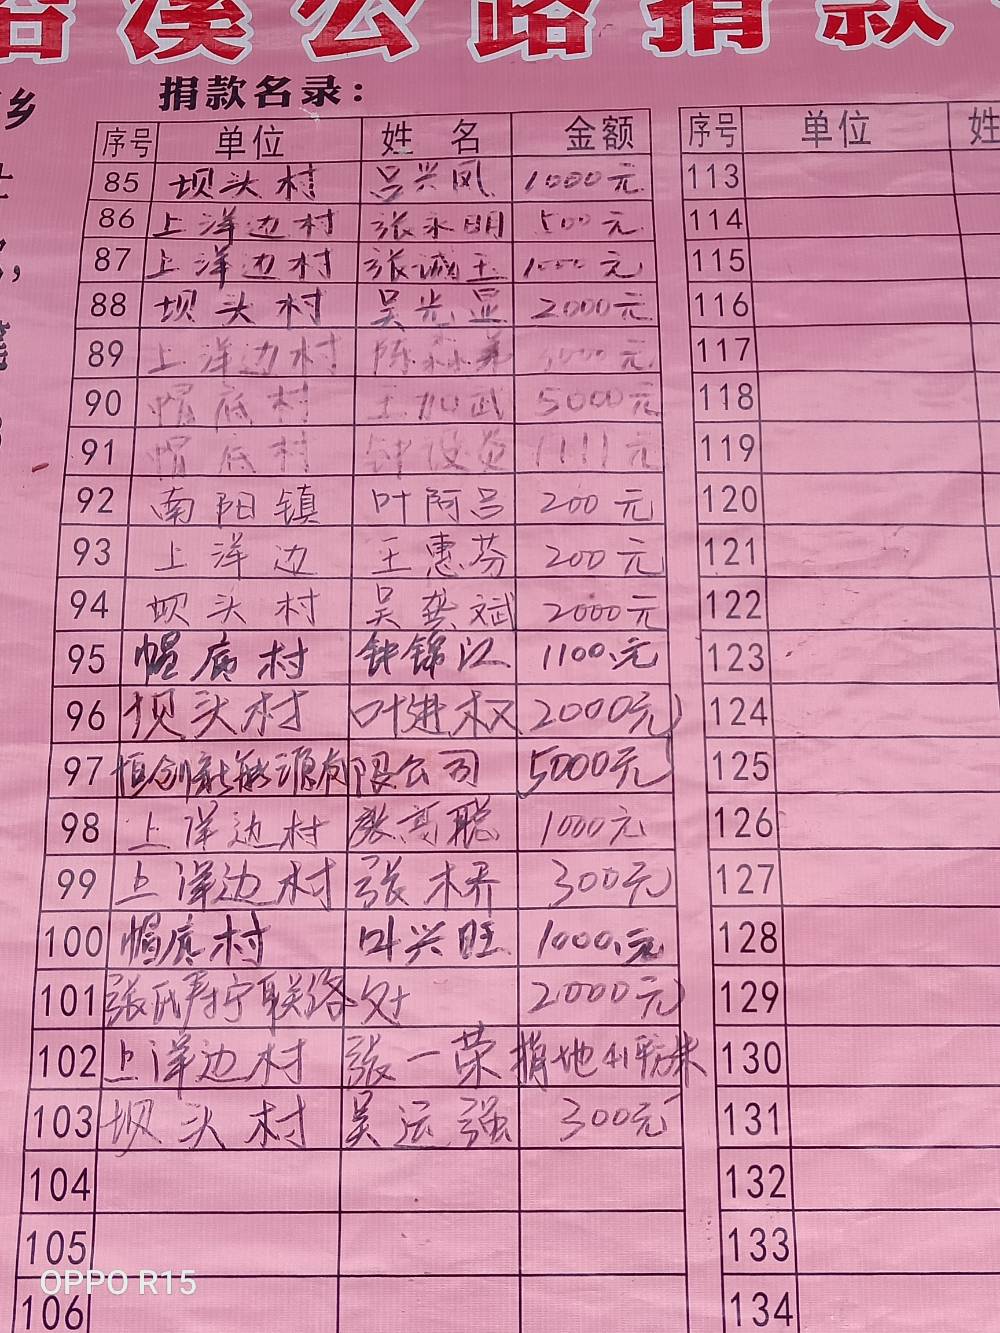 溪公路捐款
乡
捐款名录：
序号 单位 姓名 金额
85 坝头村 吕兴风 1000元
86 上洋边村 张永明 500元
87 上洋边村 张诚玉 1000元
88 坝头村 吴光显 2000元
89 上洋边村 陈森弟 元
90 帽底村 王加武 5000元
91 帽底村 钟 1111元
92 南阳镇 叶阿吕 200元
93 上洋边 王惠芬 200元
94 坝头村 吴龚斌 2000元
95 帽底村 钟锦 1100元
96 坝头村 叶进权 2000元
97 恒创新能源有限公司 5000元
98 上洋边村 聪 1000元
99 上洋边村 张 300元
100 帽底村 叶兴旺 1000元
101 张氏寿宁联络处 2000元
102 上洋边村 张一荣 捐地41平方米
103 坝头村 吴运强 300元
104
105
106
序号 单位 姓
113
114
115
116
117
118
119
120
121
122
123
124
125
126
127
128
129
130
131
132
133
134
OPPO R15